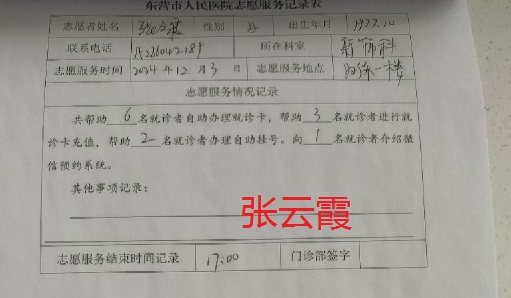 东营市人民医院志愿服务记录表
志愿者姓名 性别 出生年月 1977.10
联系电话 所在科室
志愿服务时间 2024年12月3日 志愿服务地点 一楼
志愿服务情况记录
共帮助6名就诊者自助办理就诊卡，帮助3名就诊者进行就
诊卡充值，帮助2名就诊者办理自助挂号。向1名就诊者介绍微
信预约系统。
其他事项记录：
张云霞
志愿服务结束时间记录 17:00 门诊部签字